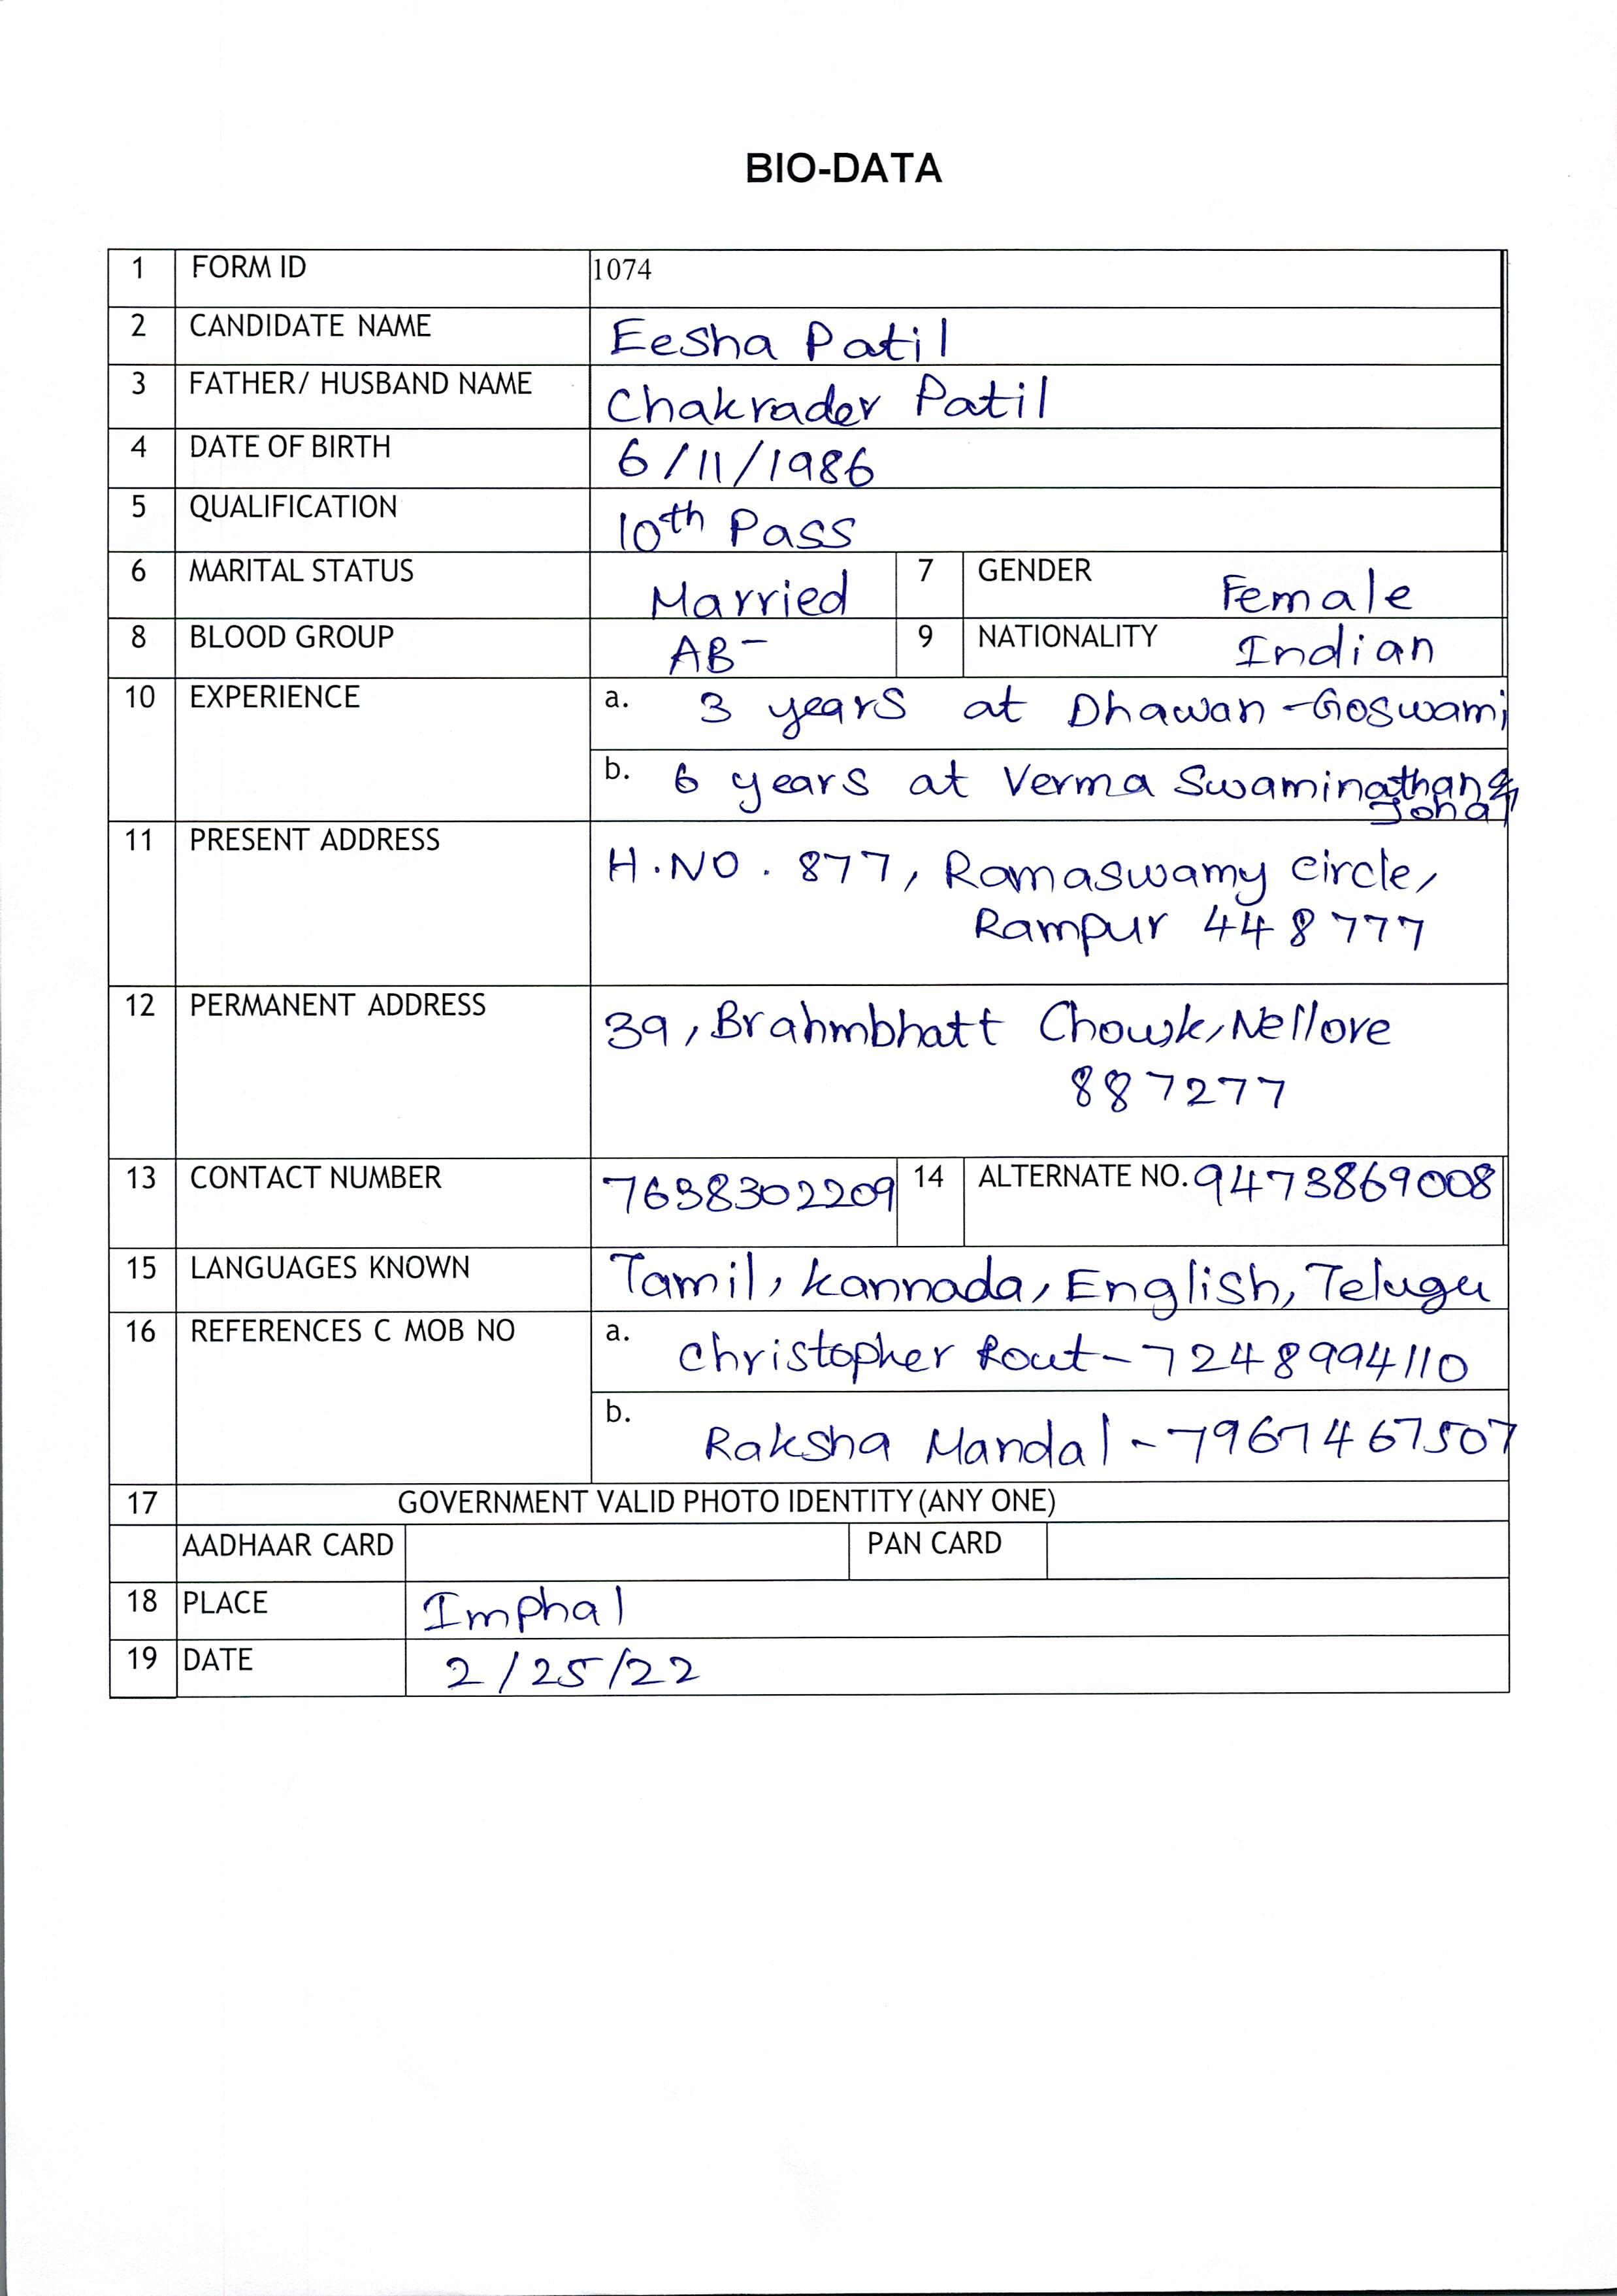 BIO-DATA
1 FORM ID 1074
2 CANDIDATE NAME Eesha Patil
3 FATHER/ HUSBAND NAME Chakrader Patil
4 DATE OF BIRTH 6/11/1986
5 QUALIFICATION 10th Pass
6 MARITAL STATUS Married 7 GENDER Female
8 BLOOD GROUP AB- 9 NATIONALITY Indian
10 EXPERIENCE a. 3 years at Dhawan-Goswami
b. 6 years at Verma Swaminathan &
Johal
11 PRESENT ADDRESS
H.NO. 877, Ramaswamy circle,
Rampur 448777
12 PERMANENT ADDRESS
39, Brahmbhatt Chowk, Nellore
887277
13 CONTACT NUMBER 7638302209 14 ALTERNATE NO. 9473869008
15 LANGUAGES KNOWN Tamil, Kannada, English, Telugu
16 REFERENCES C MOB NO a. Christopher Rout - 7248994110
b. Raksha Mandal - 7967467507
17 GOVERNMENT VALID PHOTO IDENTITY (ANY ONE)
AADHAAR CARD PAN CARD
18 PLACE Imphal
19 DATE 2/25/22